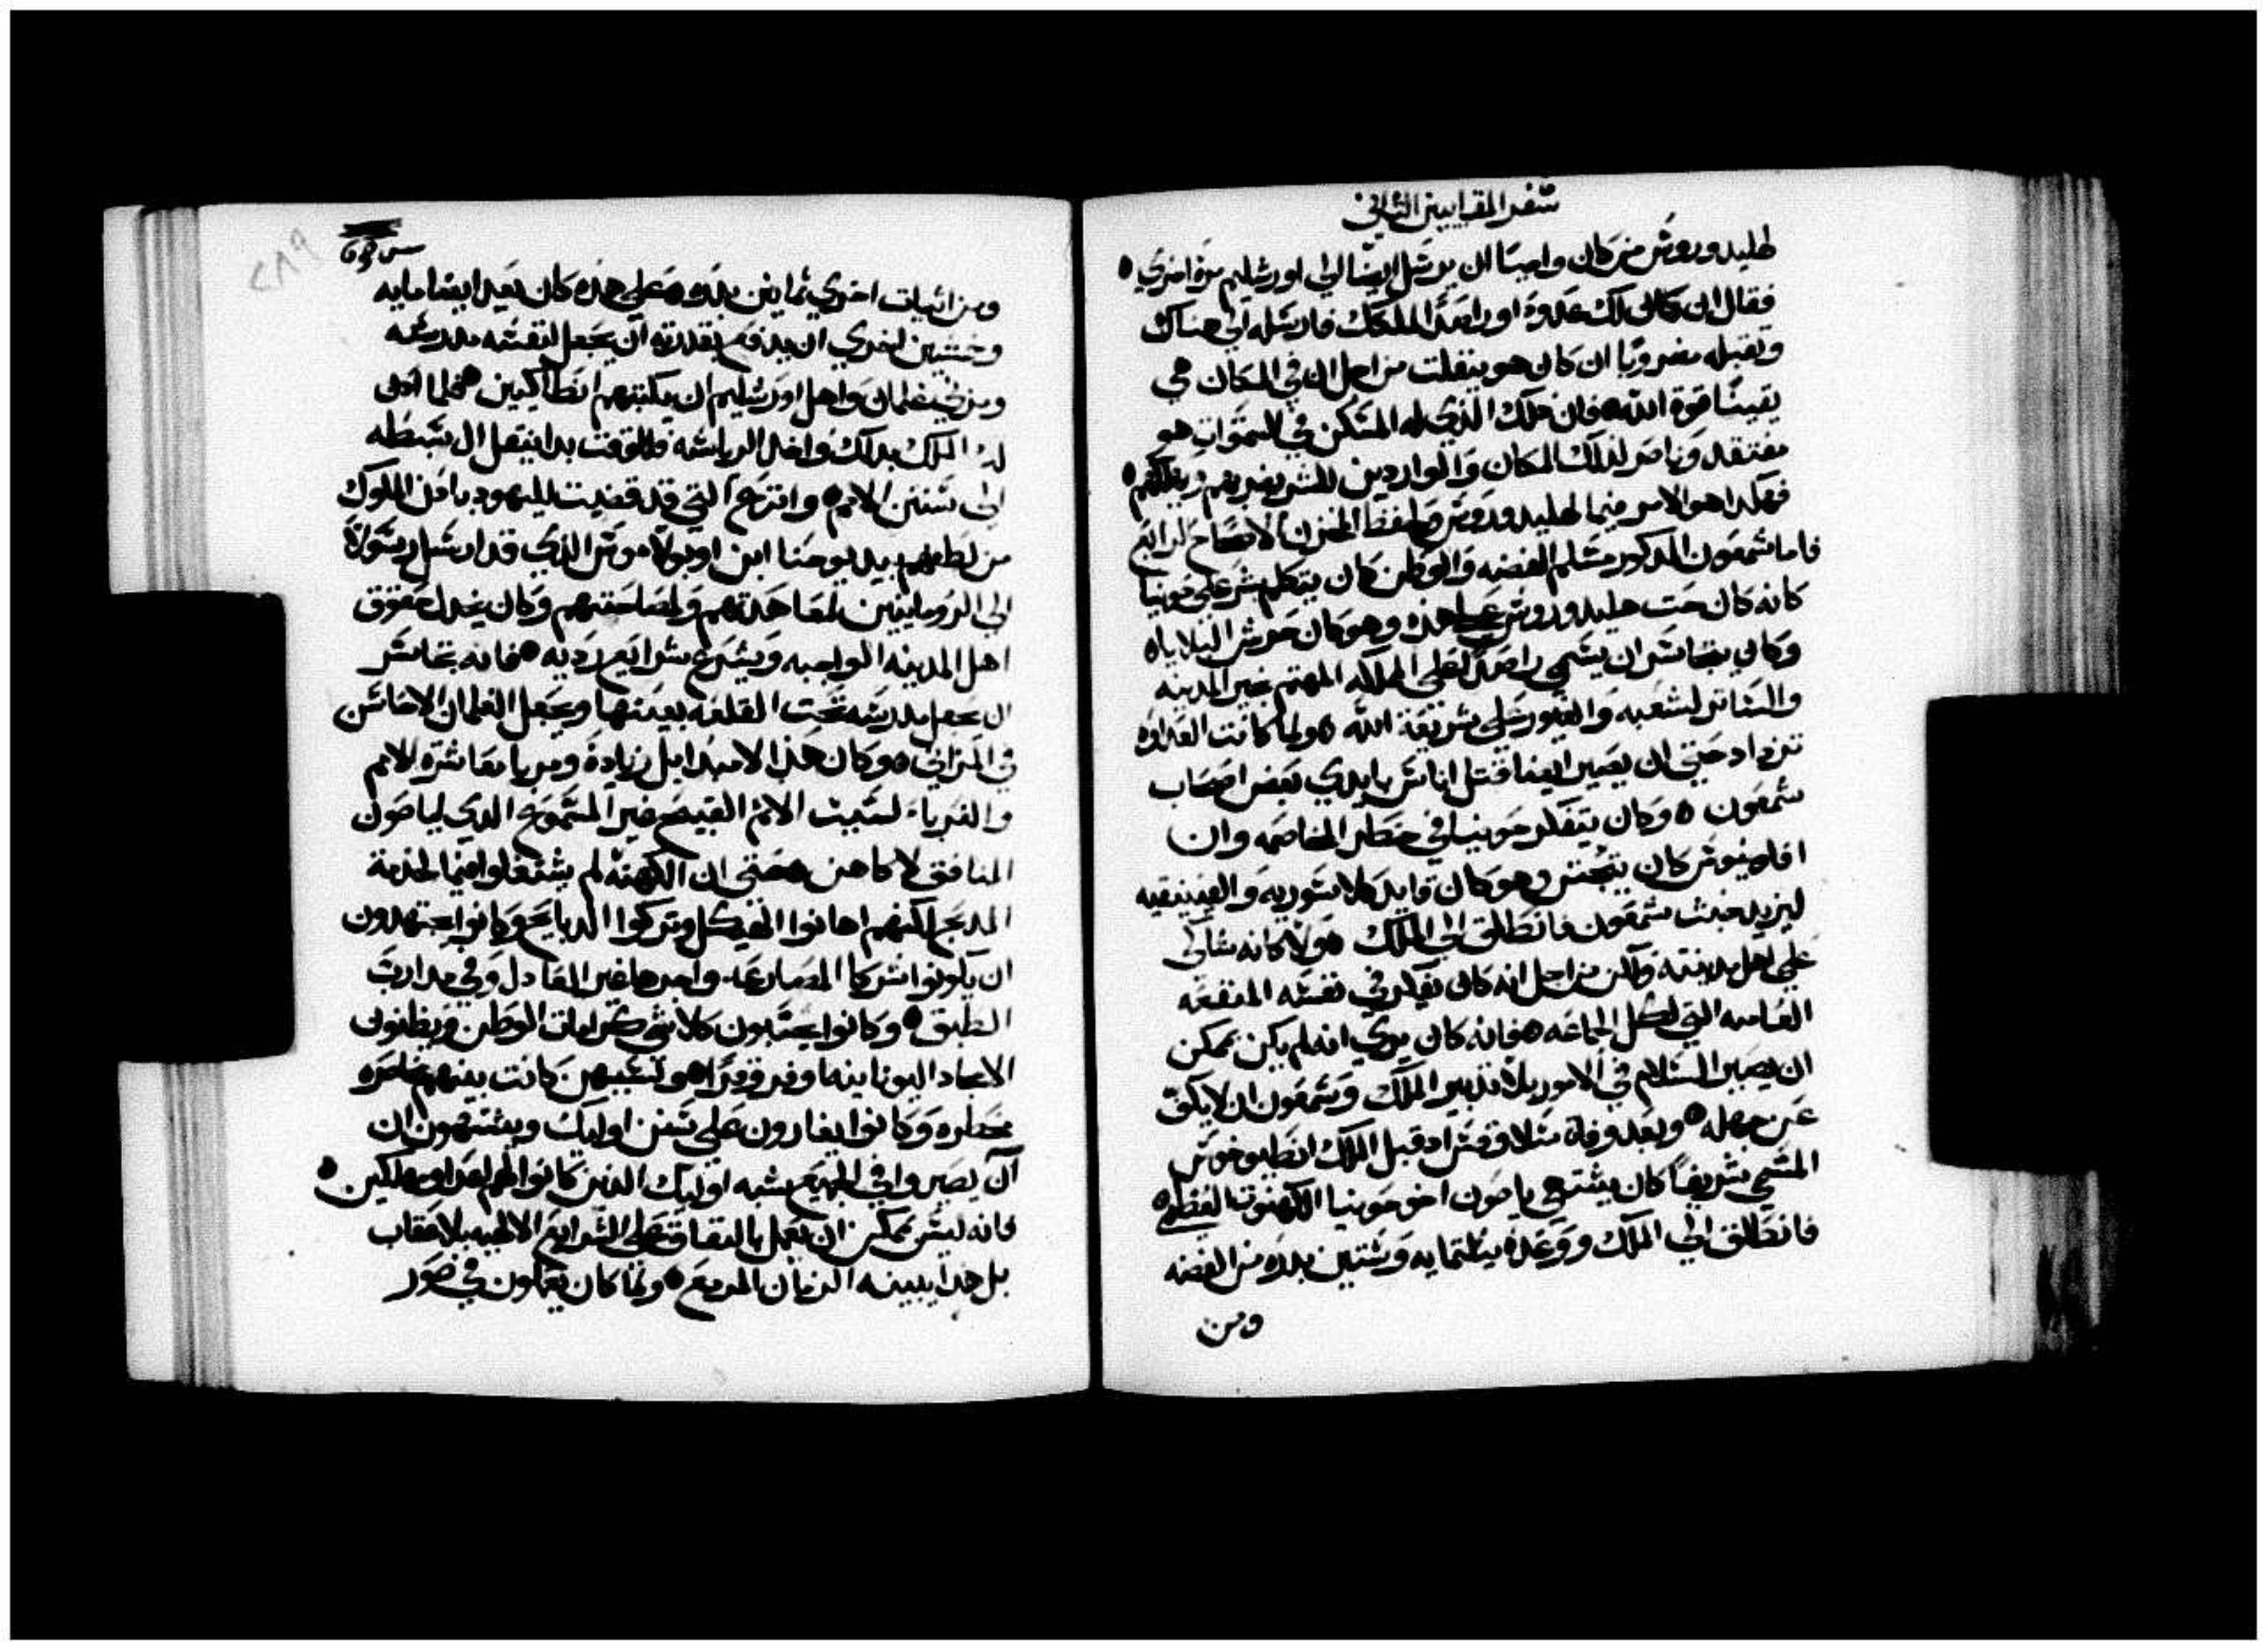 سفر المقابيين الثاني
هليدوروس من كان واجبًا ان يرسل ايضا الى اورشليم مرة اخري
فقال ان كان لك عدوة او راصدًا لملكك فارسله الى هناك
وتقبله مضروبًا ان كان هو ينفلت من اجل ان في المكان هي
يقينًا قوة الله فان ذلك الذي له المسكن في السموات هو
مفتقد وناصر لذلك المكان والواردين للشر يضربهم ويهلكهم
فهكدا هو الامر فيما لهليدوروس ولحفظ الخزن الاصحاح الرابع
فاما شمعون المدكور مسلم الفضه والوطن كان يتكلم شر على حونيا
كانه كان حت هليدوروس على هده وهو كان حرش البلاياه
وكان يتجاسر ان يسمي راصدًا لطى المملكه المهتم بخير المدينه
والساتر لشعبه والغيور على شريعة الله ولما كانت العداوه
تزداد حتى ان يصير ايضا قتل اناس بايدي بعض اصحاب
شمعون وكان يتفكر حونيا في خطر المخاصمه وان
افلونيوس كان يتجنن وهو كان قايد كلا سوريه والفينيقيه
ليزيد خبث شمعون فانطلق الى الملك ولا كانه شاكى
على اهل مدينته ولكن من اجل انه كان يفكر في نفسه المنفعه
العاميه التي لكل الجماعه فانه كان يري انه لم يكن ممكن
ان يصير السلام في الامور بلا تدبير الملك وشمعون ان لا يكف
عن جهله وبعد وفاة سلاوقس اد قبل الملك انطيوخوس
المسمي شريفًا كان يشتهي ياصون اخو حونيا الكهنوت العظمه
فانطلق الى الملك ووعده بثلتمايه وستين بدره من الفضه
ومن
ومن اتيات اخري ثمانين بدره وعلى هذه كان يعد ايضا مايه
وخمسين اخري ان يدفع بقدرته ان يجعل لنفسه مدرسه
ومربي غلمان واهل اورشليم ان يكتبهم انطاكيين فلما ادن
له الملك بدلك واخد الرياسه فالوقت بدا ينتقل ال سبطه
الى سنن الامم وانتزع التي قد قضيت لليهود بامن الملوك
من لطفهم بيد يوحنا ابن اوبولاموس الذي قد ارسل رسولاً
الى الرومانيين لمعاهدتهم ولمصاحبتهم وكان يخدل حقوق
اهل المدينه الواجبه ويشرع شرايع رديه فانه تجاسر
ان يجعل مدرسه تحت القلعه بعينها ويجعل الغلمان الاحاسن
في المزاني وكان هذا الامر بدا بل زيادة ومربا معاشرة الامم
والغربا لسبب الاثم القبيح غير المسموع الدي لياصون
المنافق لا كاهن حتى ان الكهنه لم يشتغلوا فيما لخدمة
المدبح لكنهم اهانوا الهيكل وتركوا الدبايح وكانوا يجتهدون
ان يكونوا شركا المصارعه واجرها غير العادل وفي مدارب
الطبق وكانوا يحسبون كلا شي كرامات الوطن ويظنون
الامجاد اليونانيه اوفر وقرًا ولسببهن كانت بينهم مناصره
مخطره وكانوا يغارون على سنن اوليك ويشتهون ان
ان يصيروا في الجميع شبه اوليك الذين كانوا لهم اعدا ومهلكين
فانه ليس ممكن ان يعمل بالنفاق على الشرايع الالهيه بلا عقاب
بل هدا يبينه الزمان المزمع ولما كان يعملون في صور